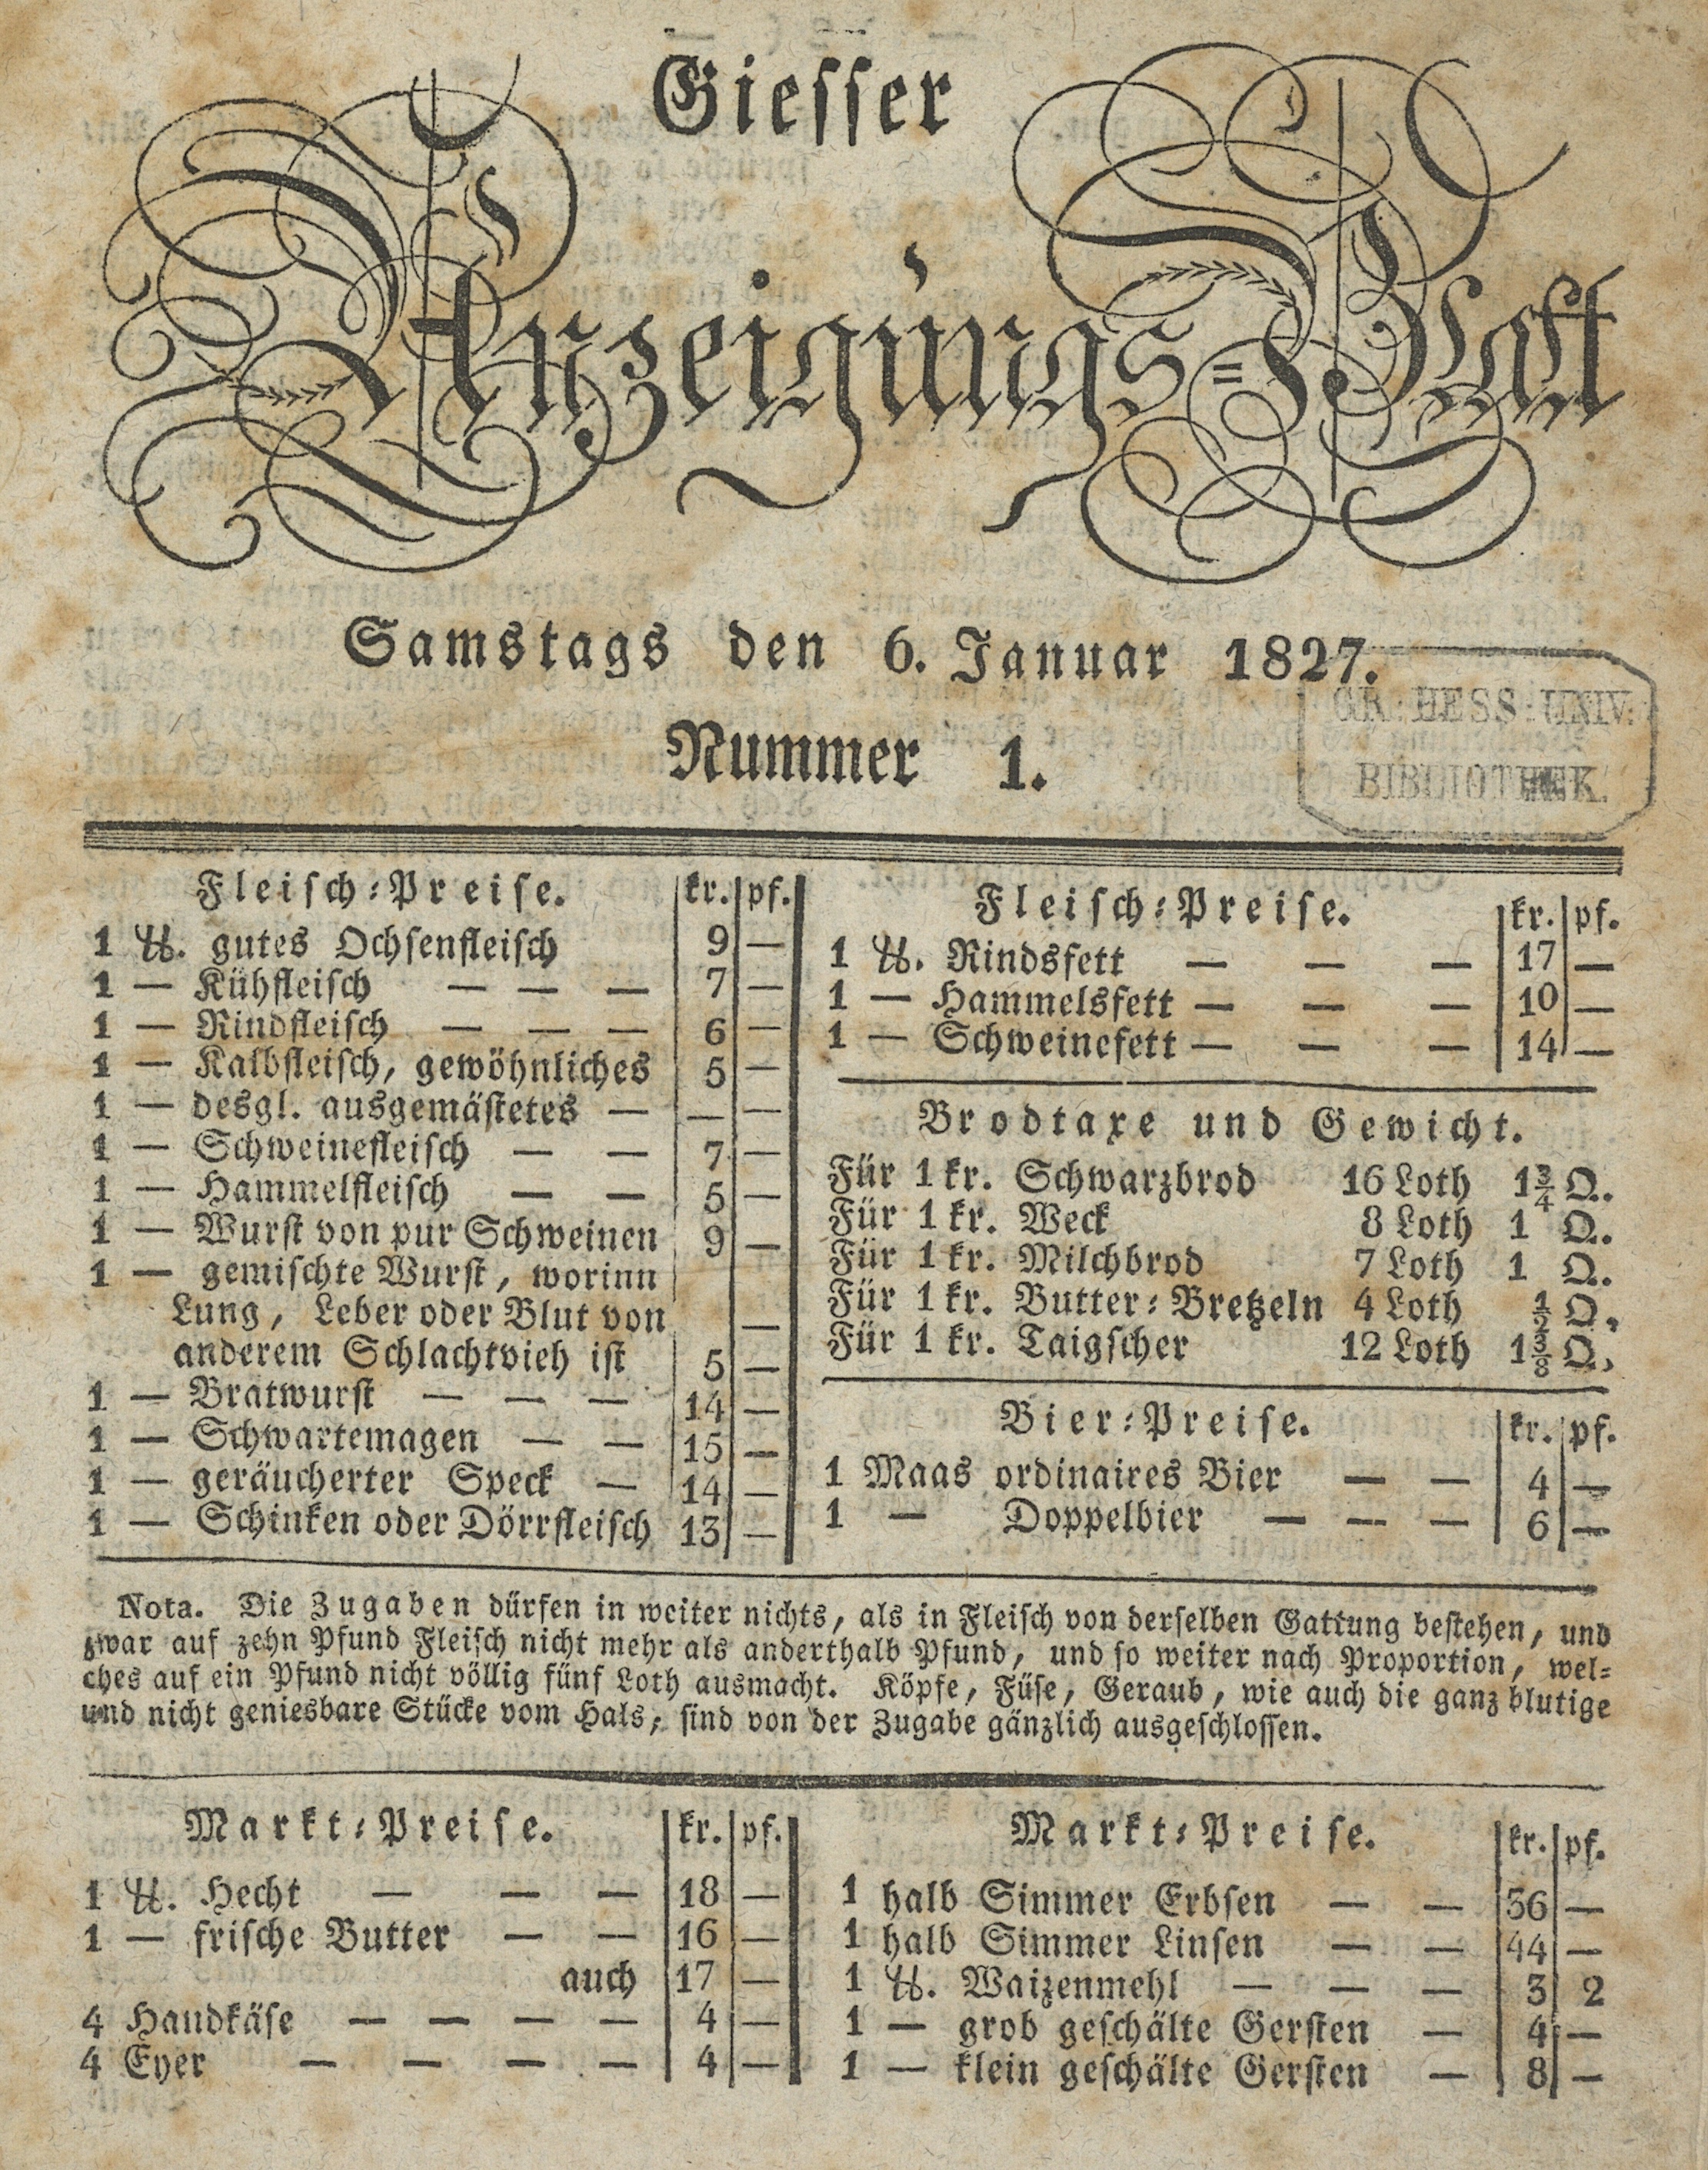 Giesser
Anzeigungs=Blatt
Samstags den 6. Januar 1827.
GR: HESS: UNIV:
BIBLIOTHEK.
Nummer 1.
Fleisch=Preise. kr. pf.
1 ℔. gutes Ochsenfleisch 9 —
1 — Kühfleisch — — — 7 —
1 — Rindfleisch — — — 6 —
1 — Kalbfleisch, gewöhnliches 5 —
1 — desgl. ausgemästetes — — —
1 — Schweinefleisch — — 7 —
1 — Hammelfleisch — — 5 —
1 — Wurst von pur Schweinen 9 —
1 — gemischte Wurst, worinn
Lung, Leber oder Blut von —
anderem Schlachtvieh ist 5 —
1 — Bratwurst — — — 14 —
1 — Schwartemagen — — 15 —
1 — geräucherter Speck — 14 —
1 — Schinken oder Dörrfleisch 13 —
Fleisch=Preise. kr. pf.
1 ℔. Rindsfett — — — 17 —
1 — Hammelsfett — — — 10 —
1 — Schweinefett — — — 14 —
Brodtaxe und Gewicht.
Für 1 kr. Schwarzbrod 16 Loth 1¾ Q.
Für 1 kr. Weck 8 Loth 1 Q.
Für 1 kr. Milchbrod 7 Loth 1 Q.
Für 1 kr. Butter=Bretzeln 4 Loth ½ Q.
Für 1 kr. Taigscher 12 Loth 1⅜ Q.
Bier=Preise. kr. pf.
1 Maas ordinaires Bier — — 4 —
1 — Doppelbier — — — 6 —
Nota. Die Zugaben dürfen in weiter nichts, als in Fleisch von derselben Gattung bestehen, und
zwar auf zehn Pfund Fleisch nicht mehr als anderthalb Pfund, und so weiter nach Proportion, wel=
ches auf ein Pfund nicht völlig fünf Loth ausmacht. Köpfe, Füse, Geraub, wie auch die ganz blutige
und nicht geniesbare Stücke vom Hals, sind von der Zugabe gänzlich ausgeschlossen.
Markt=Preise. kr. pf.
1 ℔. Hecht — — — 18 —
1 — frische Butter — — 16 —
auch 17 —
4 Handkäse — — — — 4 —
4 Eyer — — — — 4 —
Markt=Preise. kr. pf.
1 halb Simmer Erbsen — — 36 —
1 halb Simmer Linsen — — 44 —
1 ℔. Waizenmehl — — — 3 2
1 — grob geschälte Gersten — 4 —
1 — klein geschälte Gersten — 8 —